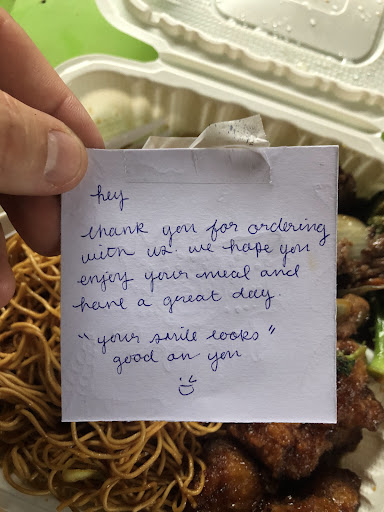 hey
thank you for ordering
with us. we hope you
enjoy your meal and
have a great day.
"your smile looks"
good on you